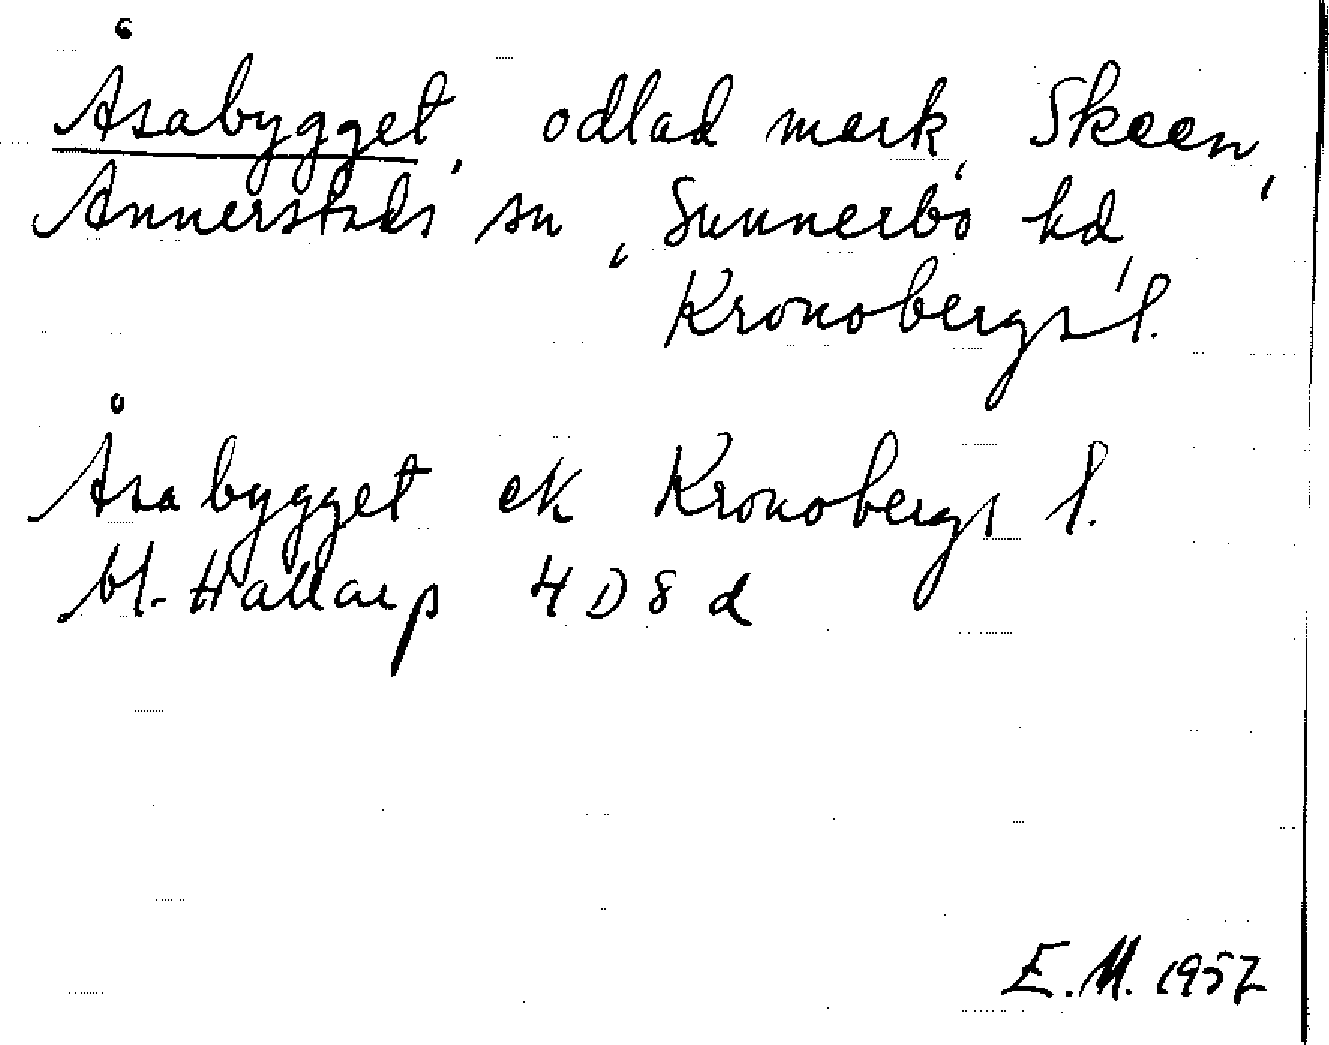 Åsabygget, odlad mark, Skeen,
Annerstads sn, Sunnerbo hd,
Kronobergs l.
Åsabygget ek Kronobergs l.
bl. Hallarp 4 D 8 d
E.M. 1957